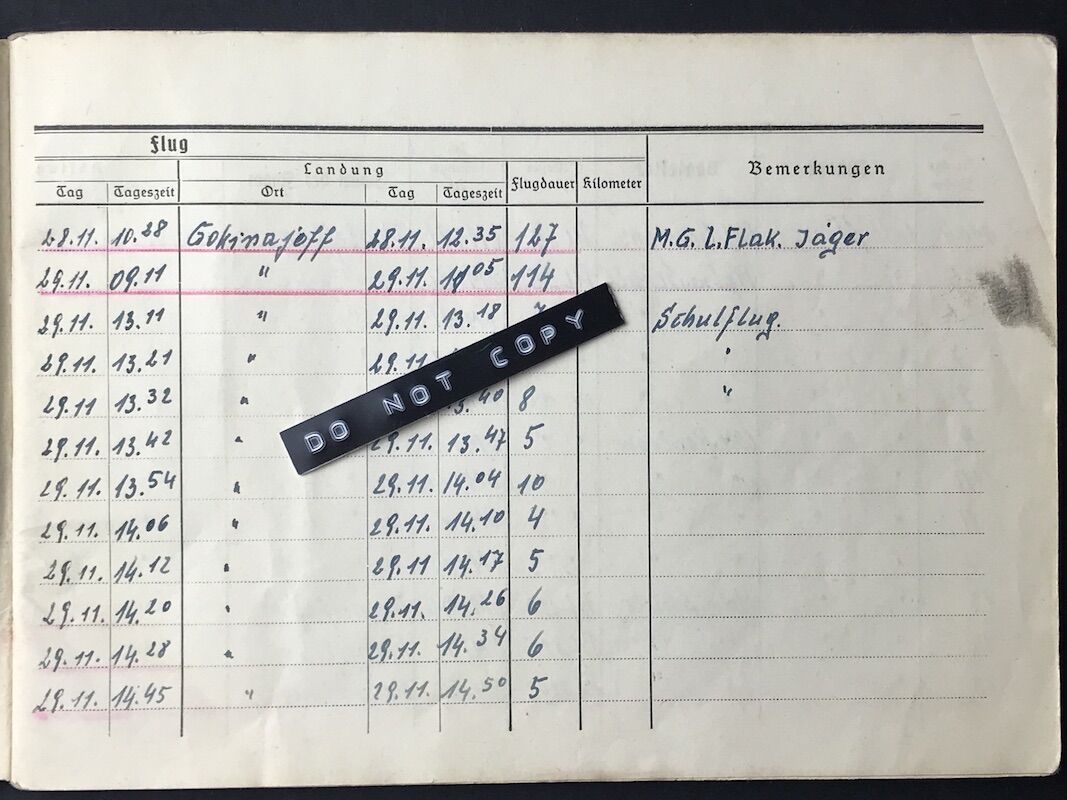 Flug
Landung
Bemerkungen
Tag Tageszeit Ort Tag Tageszeit Flugdauer Kilometer
28.11. 10.28 28.11. 12.35 127 M.G. l.Flak. Jäger
29.11. 09.11 " 29.11. 11.05 114
29.11. 13.11 " 29.11. 13.18 7 Schulflug.
29.11. 13.21 " 29.11 "
29.11 13.32 " 13.40 8 "
29.11. 13.42 " 29.11. 13.47 5
29.11. 13.54 " 29.11. 14.04 10
29.11. 14.06 " 29.11. 14.10 4
29.11. 14.12 " 29.11 14.17 5
29.11. 14.20 " 29.11. 14.26 6
29.11. 14.28 " 29.11. 14.34 6
29.11. 14.45 " 29.11. 14.50 5
DO NOT COPY